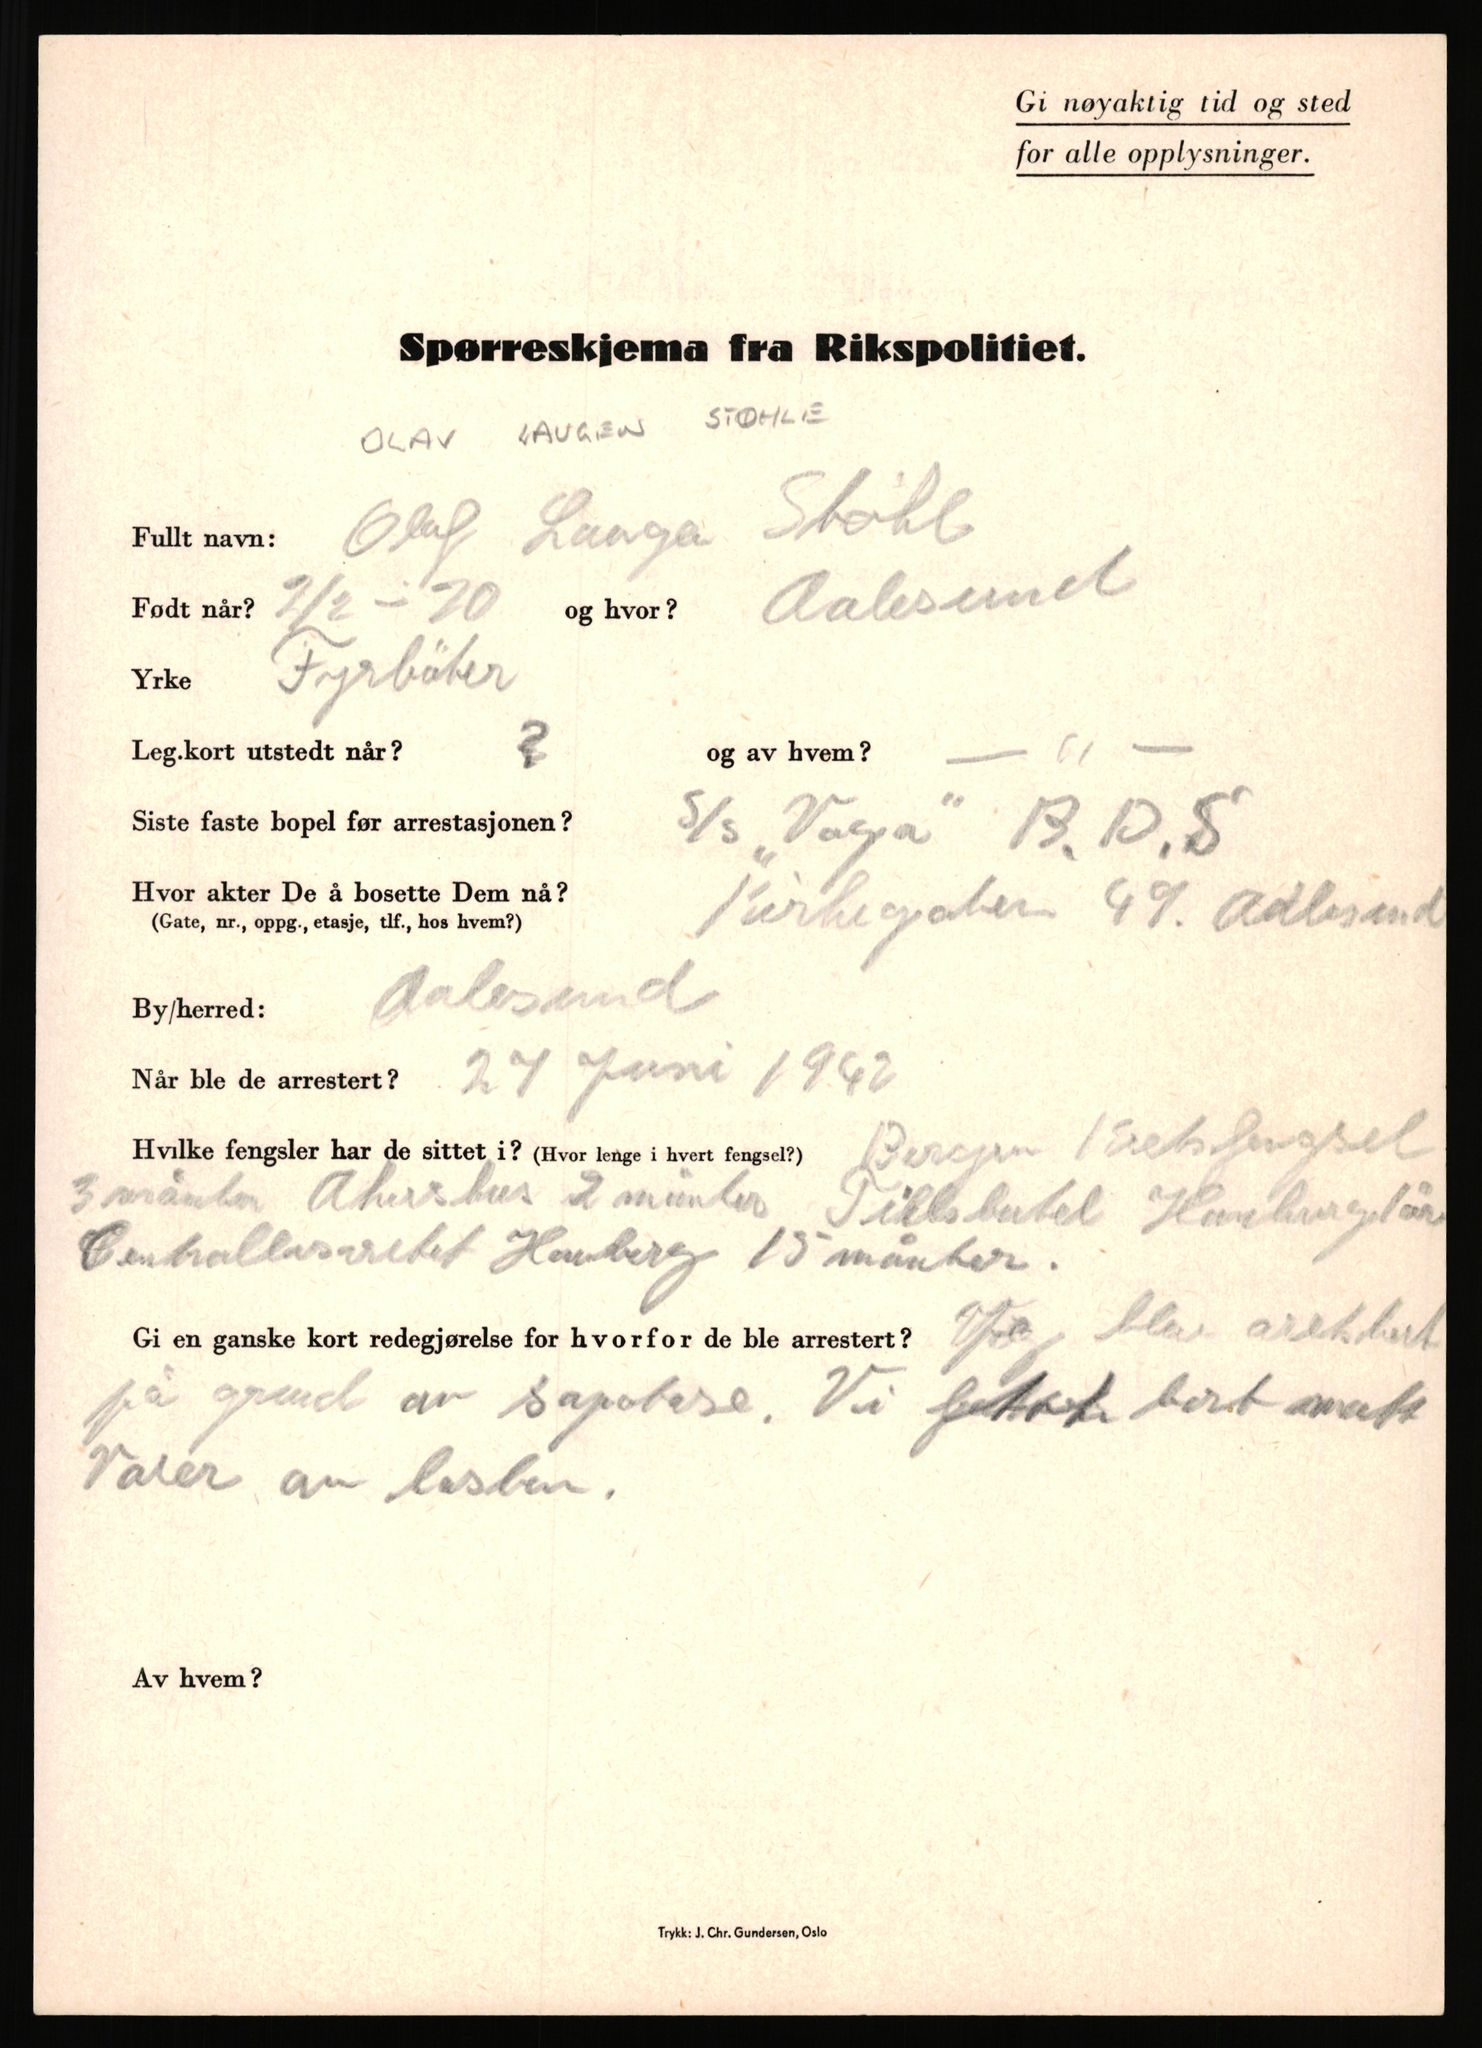 Gi nøyaktig tid og sted
for alle opplysninger.
Spørreskjema fra Rikspolitiet.
OLAV LAUGEN STØHLE
Fullt navn: Olaf Lauga Støhle
Født når? 2/2 - 20 og hvor? Aalesund
Yrke Fyrböter
Leg.kort utstedt når? ? og av hvem? — " —
Siste faste bopel før arrestasjonen? S/S „Vaga" B.D.S
Hvor akter De å bosette Dem nå? Kirkegaten 49. Aalesund
(Gate, nr., oppg., etasje, tlf., hos hvem?)
By/herred: Aalesund
Når ble de arrestert? 27 Juni 1942
Hvilke fengsler har de sittet i? (Hvor lenge i hvert fengsel?) Bergen Kretsfengsel
3 månter Akershus 2 månter Hamburg 1 år
Centrallasaretet Hamberg 15 månter.
Gi en ganske kort redegjørelse for hvorfor de ble arrestert? blev
på grund av sapotase. Vi bort matt
Varer av lasten.
Av hvem?
Trykk: J. Chr. Gundersen, Oslo